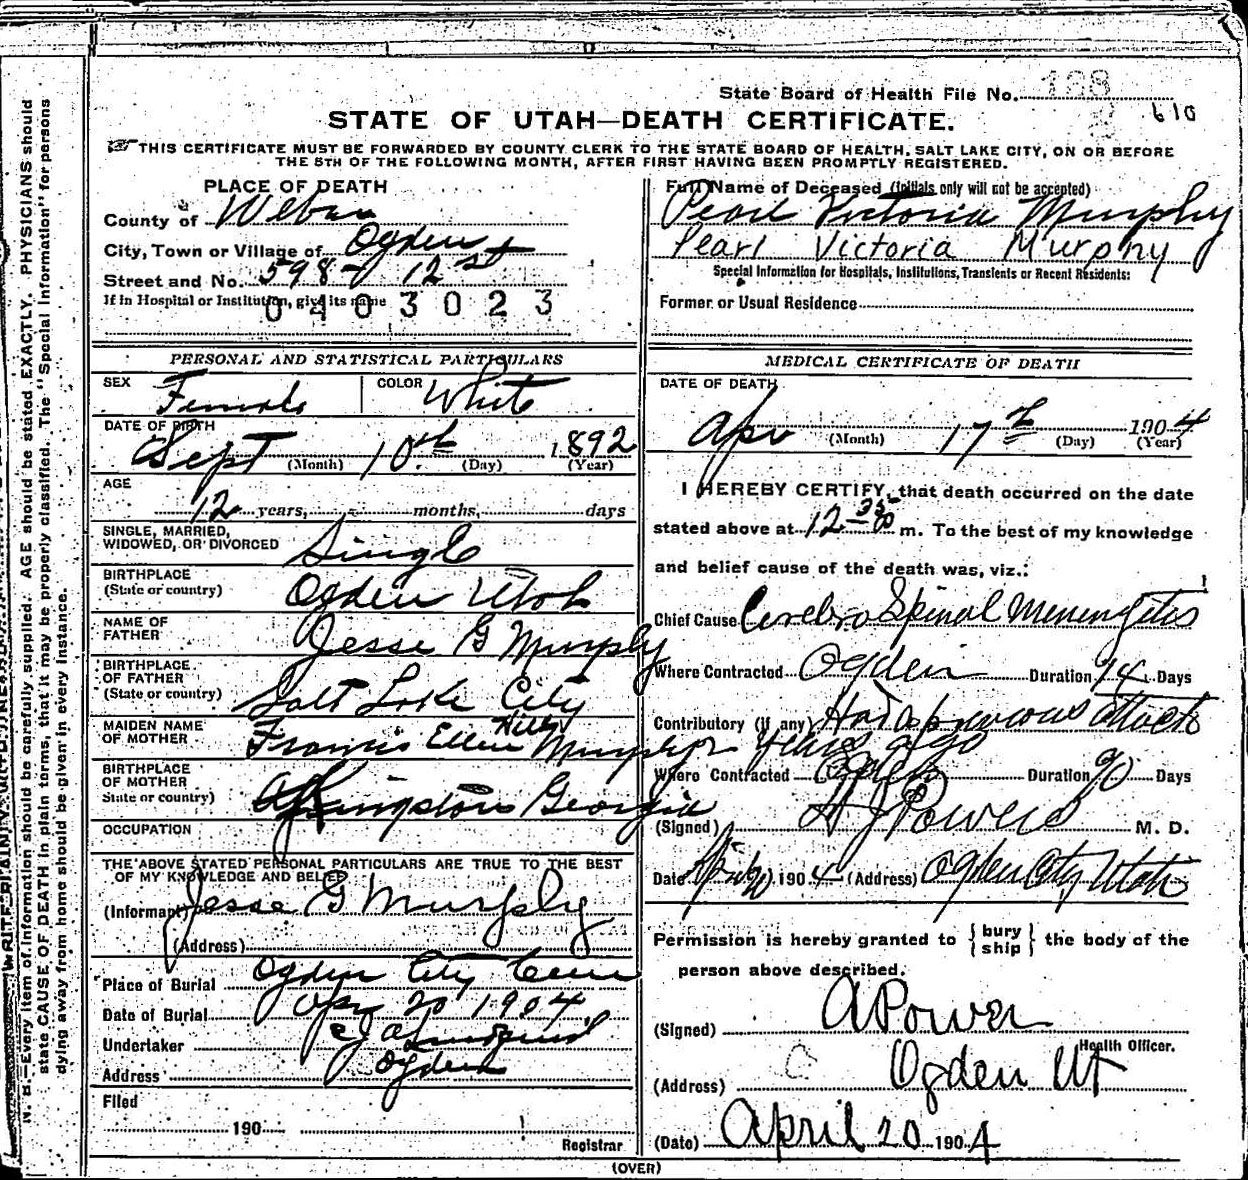 State Board of Health File No. 168
610
STATE OF UTAH—DEATH CERTIFICATE.
THIS CERTIFICATE MUST BE FORWARDED BY COUNTY CLERK TO THE STATE BOARD OF HEALTH, SALT LAKE CITY, ON OR BEFORE
THE 5TH OF THE FOLLOWING MONTH, AFTER FIRST HAVING BEEN PROMPTLY REGISTERED.
PLACE OF DEATH
County of Weber
City, Town or Village of Ogden
Street and No. 598- 12 st
If in Hospital or Institution, give its name
0403023
Full Name of Deceased (Initials only will not be accepted)
Pearl Victoria Murphy
Pearl Victoria Murphy
Special Information for Hospitals, Institutions, Transients or Recent Residents:
Former or Usual Residence
PERSONAL AND STATISTICAL PARTICULARS
SEX Female COLOR White
DATE OF BIRTH
Sept (Month) 10th (Day) 1892 (Year)
AGE
12 years, - months, days
SINGLE, MARRIED,
WIDOWED, OR DIVORCED Single
BIRTHPLACE
(State or country) Ogden Utah
NAME OF
FATHER Jesse G Murphy
BIRTHPLACE
OF FATHER
(State or country) Salt Lake City
MAIDEN NAME
OF MOTHER Francis Ellen Murphy
BIRTHPLACE
OF MOTHER
State or country) Kingston Georgia
OCCUPATION
THE ABOVE STATED PERSONAL PARTICULARS ARE TRUE TO THE BEST
OF MY KNOWLEDGE AND BELIEF
(Informant) Jesse G Murphy
(Address)
Place of Burial Ogden City Cem
Date of Burial Apr 20 1904
Undertaker
Address Ogden
Filed
190
Registrar
MEDICAL CERTIFICATE OF DEATH
DATE OF DEATH
Apr (Month) 17th (Day) 1904 (Year)
I HEREBY CERTIFY, that death occurred on the date
stated above at 12-35 m. To the best of my knowledge
and belief cause of the death was, viz.:
Chief Cause Cerebro Spinal Meningitis
Where Contracted Ogden Duration 14 Days
Contributory (if any) Had a previous attack
years ago
Where Contracted Ogden Duration 90 Days
(Signed) H J Powers M. D.
Date 190 4 (Address) Ogden City Utah
Permission is hereby granted to {bury
ship} the body of the
person above described.
(Signed) A Power
Health Officer.
(Address) Ogden Ut
(Date) April 20 1904
(OVER)
N. B.—Every item of information should be carefully supplied. AGE should be stated EXACTLY. PHYSICIANS should
state CAUSE OF DEATH in plain terms, that it may be properly classified. The "Special Information" for persons
dying away from home should be given in every instance.